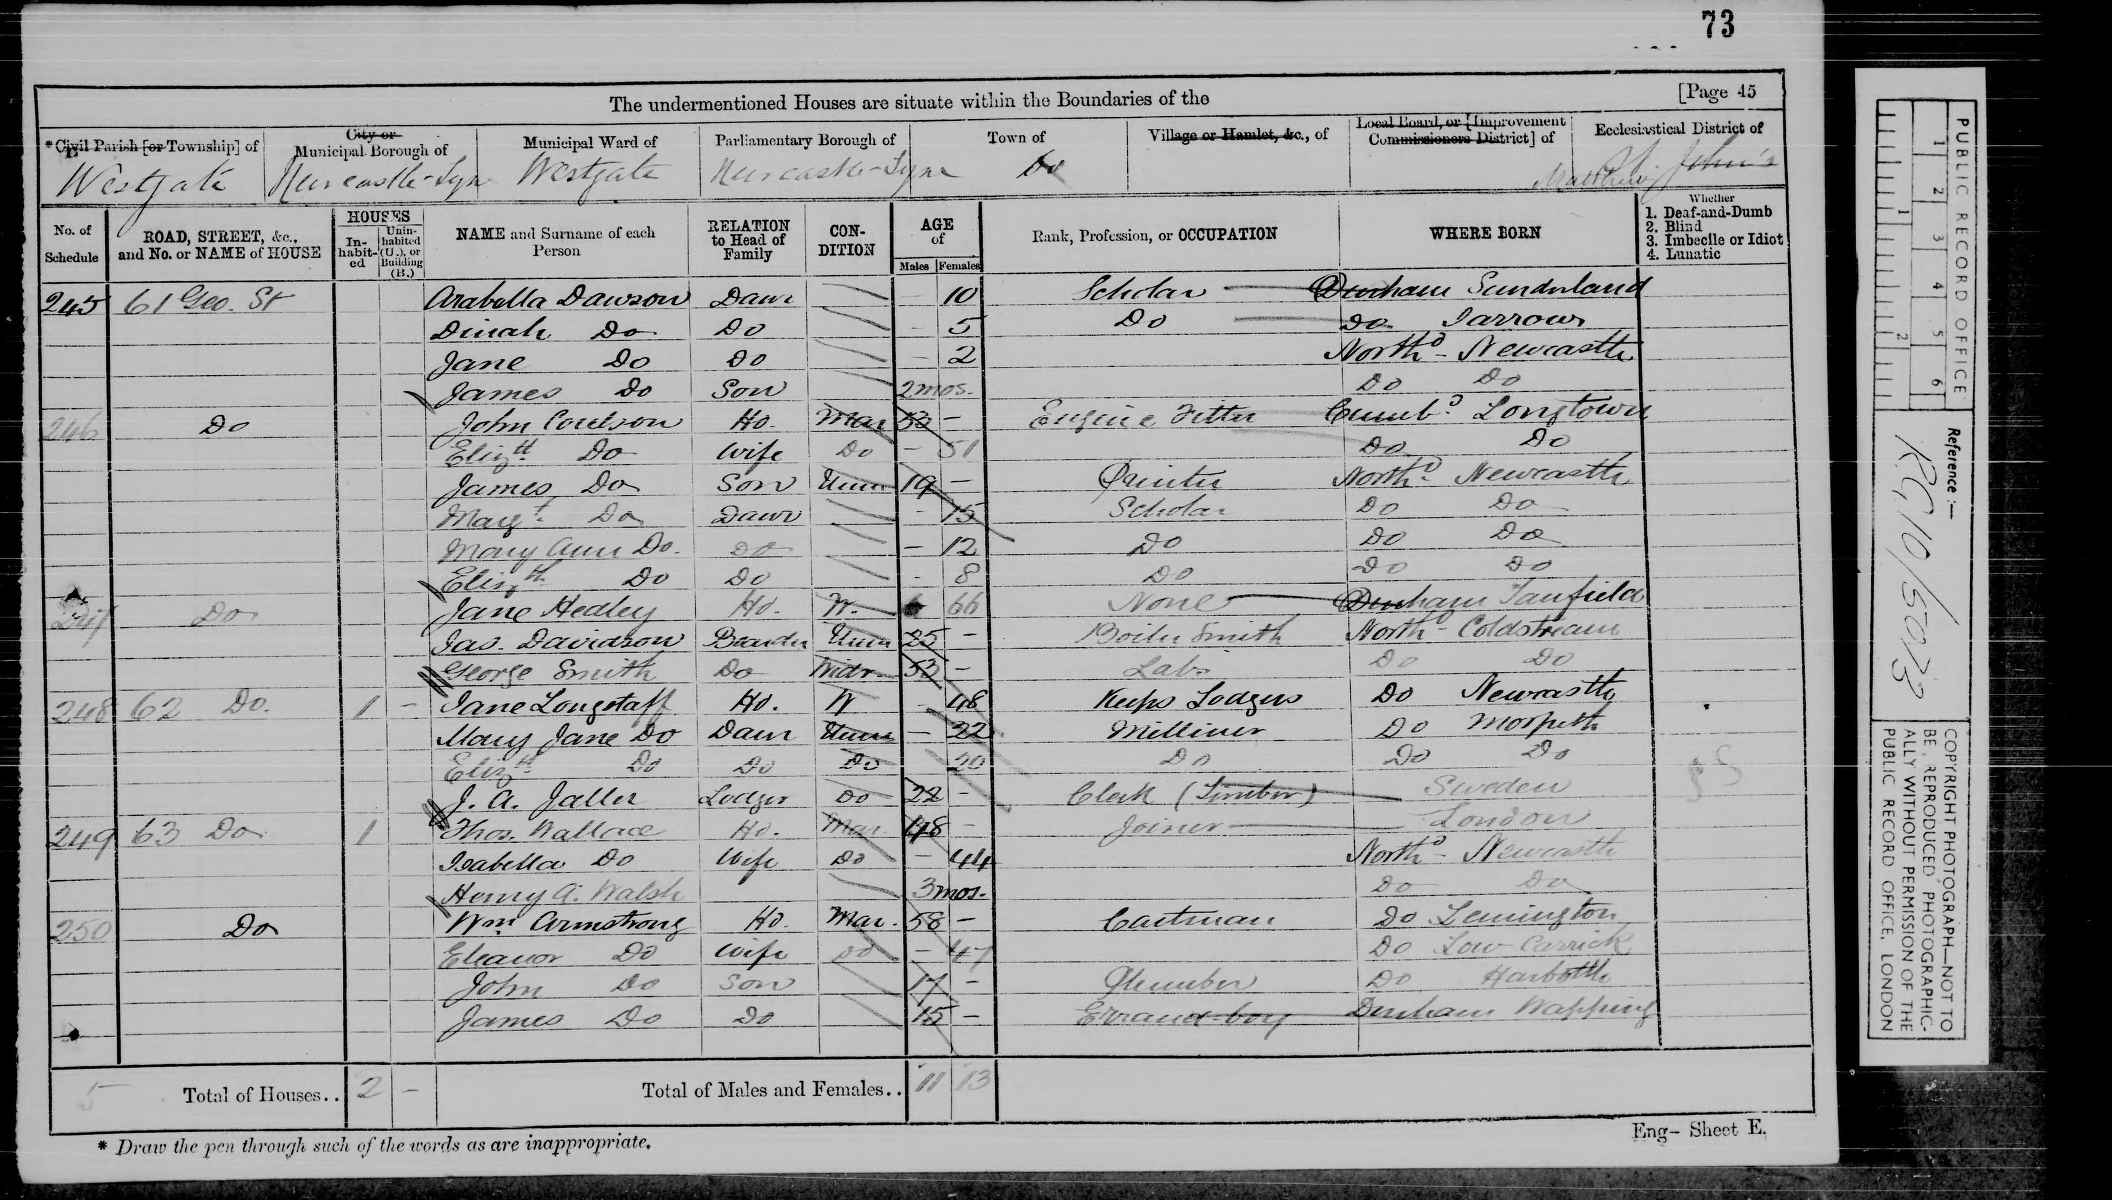 73
The undermentioned Houses are situate within the Boundaries of the [Page 45
*Civil Parish [or Township] of City or Municipal Borough of Municipal Ward of Parliamentary Borough of Town of Village or Hamlet, &c., of Local Board, or [Improvement Commissioners District] of Ecclesiastical District of
Westgate Newcastle-Tyne Westgate Newcastle-Tyne Do Matthew St. John's
No. of Schedule ROAD, STREET, &c., and No. or NAME of HOUSE HOUSES Inhabited Uninhabited (U.), or Building (B.) NAME and Surname of each Person RELATION to Head of Family CONDITION AGE of Males Females Rank, Profession, or OCCUPATION WHERE BORN Whether 1. Deaf-and-Dumb 2. Blind 3. Imbecile or Idiot 4. Lunatic
245 61 Geo. St Arabella Dawson Daur – 10 Scholar Durham Sunderland
Dinah Do Do – 5 Do Do Jarrow
Jane Do Do – 2 Northd - Newcastle
James Do Son 2mos. Do Do
246 Do John Coulson Hd. Mar 53 – Engine Fitter Cumbd. Longtown
Elizth. Do Wife Do – 51 Do Do
James Do Son Unm 19 – Printer Northd. Newcastle
Margt. Do Daur – 15 Scholar Do Do
Mary Ann Do. Do – 12 Do Do Do
Elizth. Do Do – 8 Do Do Do
Do Jane Hedley Hd. W. 66 None Durham Tanfield
Jas. Davidson Boarder Unm 25 – Boiler Smith Northd - Coldstream
George Smith Do Widr 53 – Labr Do Do
248 62 Do. 1 – Jane Longstaff Hd. W – 48 Keeps Lodgers Do Newcastle
Mary Jane Do Daur Unm – 22 Milliner Do Morpeth
Elizth. Do Do Do 20 Do Do Do
J. A. Jaller Lodger Do 22 – Clerk (Timber) Sweden
249 63 Do 1 Thos. Wallace Hd. Mar. 48 – Joiner London
Isabella Do Wife Do – 44 Northd - Newcastle
Henry A. Walsh 3mos. Do Do
250 Do Wm. Armstrong Hd. Mar. 58 – Cartman Do Lemington
Eleanor Do Wife Do – 47 Do Low Carrick
John Do Son 17 – Plumber Do Harbottle
James Do Do 15 – Errand-boy Durham Wapping
5 Total of Houses.. 2 – Total of Males and Females.. 11 13
* Draw the pen through such of the words as are inappropriate.
Eng- Sheet E.
PUBLIC RECORD OFFICE
1 2 3 4 5 6
1 2
Reference :-
R.G. 10/5073
COPYRIGHT PHOTOGRAPH—NOT TO BE REPRODUCED PHOTOGRAPHICALLY WITHOUT PERMISSION OF THE PUBLIC RECORD OFFICE, LONDON